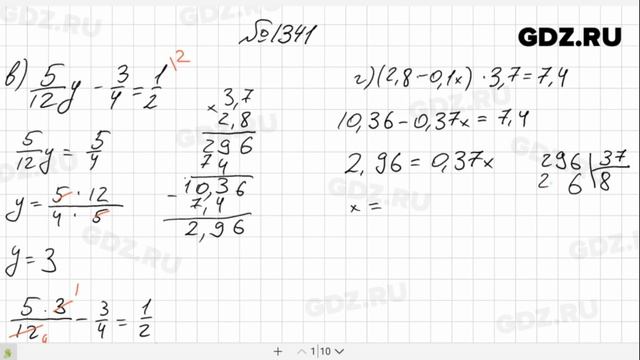 №1341
GDZ.RU
в) 5/12 y - 3/4 = 1/2 \2
5/12 y = 5/4
y = 5 · 12 / 4 · 5
y = 3
5 · 3 / 12 - 3/4 = 1/2
1
4
× 3,7
2,8
296
74
10,36
- 7,4
2,96
г) (2,8 - 0,1x) · 3,7 = 7,4
10,36 - 0,37x = 7,4
2,96 = 0,37x
x =
296 | 37
2 6 | 8
1 | 10